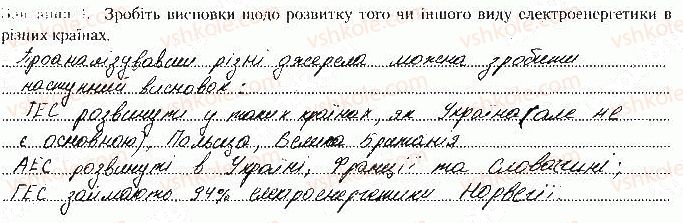 Завдання 1. Зробіть висновки щодо розвитку того чи іншого виду електроенергетики в
різних країнах.
Проаналізувавши різні джерела можна зробити
наступний висновок:
ТЕС розвинути у таких країнах, як Україна (але не
є основною), Польща, Велика Британія
АЕС розвинуті в Україні, Франції та Словаччині;
ГЕС займають 94% електроенергетики Норвегії.